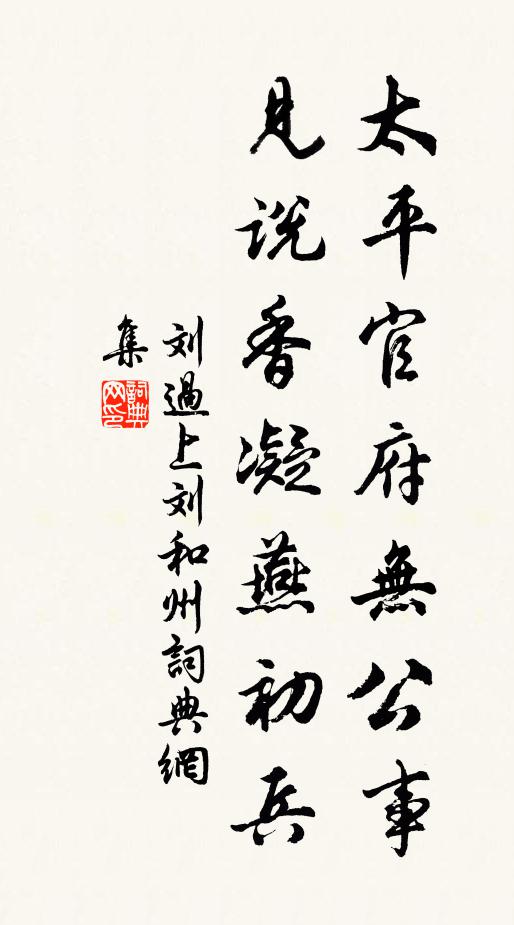 太平官府無公事
見説香凝燕初兵
刘過上刘和州詞典網
集
詞典网印